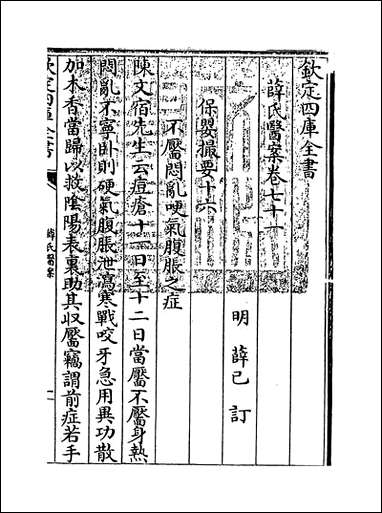 欽定四庫全書
薛氏醫案卷七十一
明 薛己 訂
保嬰撮要十六
不靨悶亂哽氣腹脹之症
陳文宿先生云痘瘡十一日至十二日當靨不靨身熱
悶亂不寧卧則硬氣腹脹泄瀉寒戰咬牙急用異功散
加木香當歸以救陰陽表裏助其收靨竊謂前症若手
欽定四庫全書
薛氏醫案